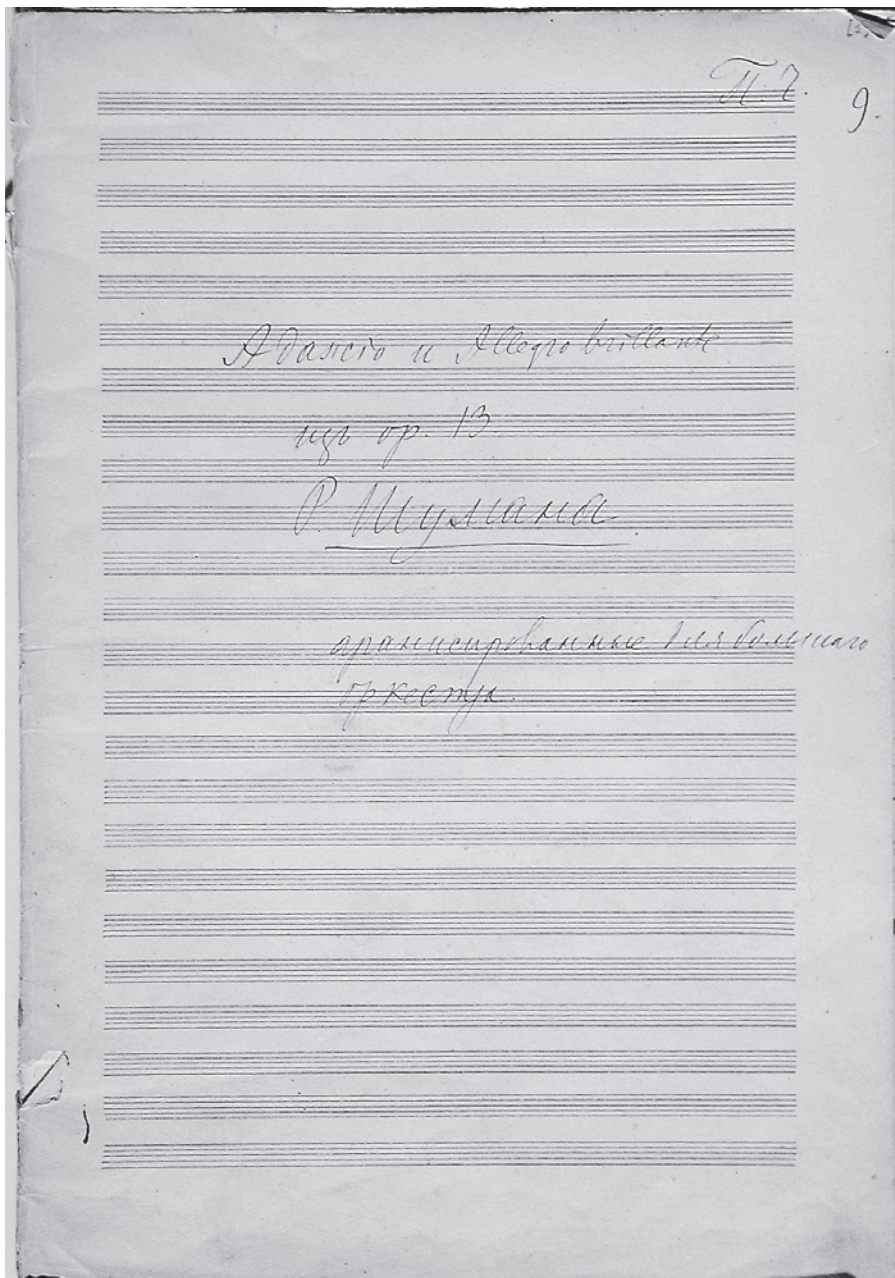 П. Ч.
9.
Адажіо и Allegro brillante
изъ op. 13
Р. Шумана
аранжированные для большаго
оркестра.